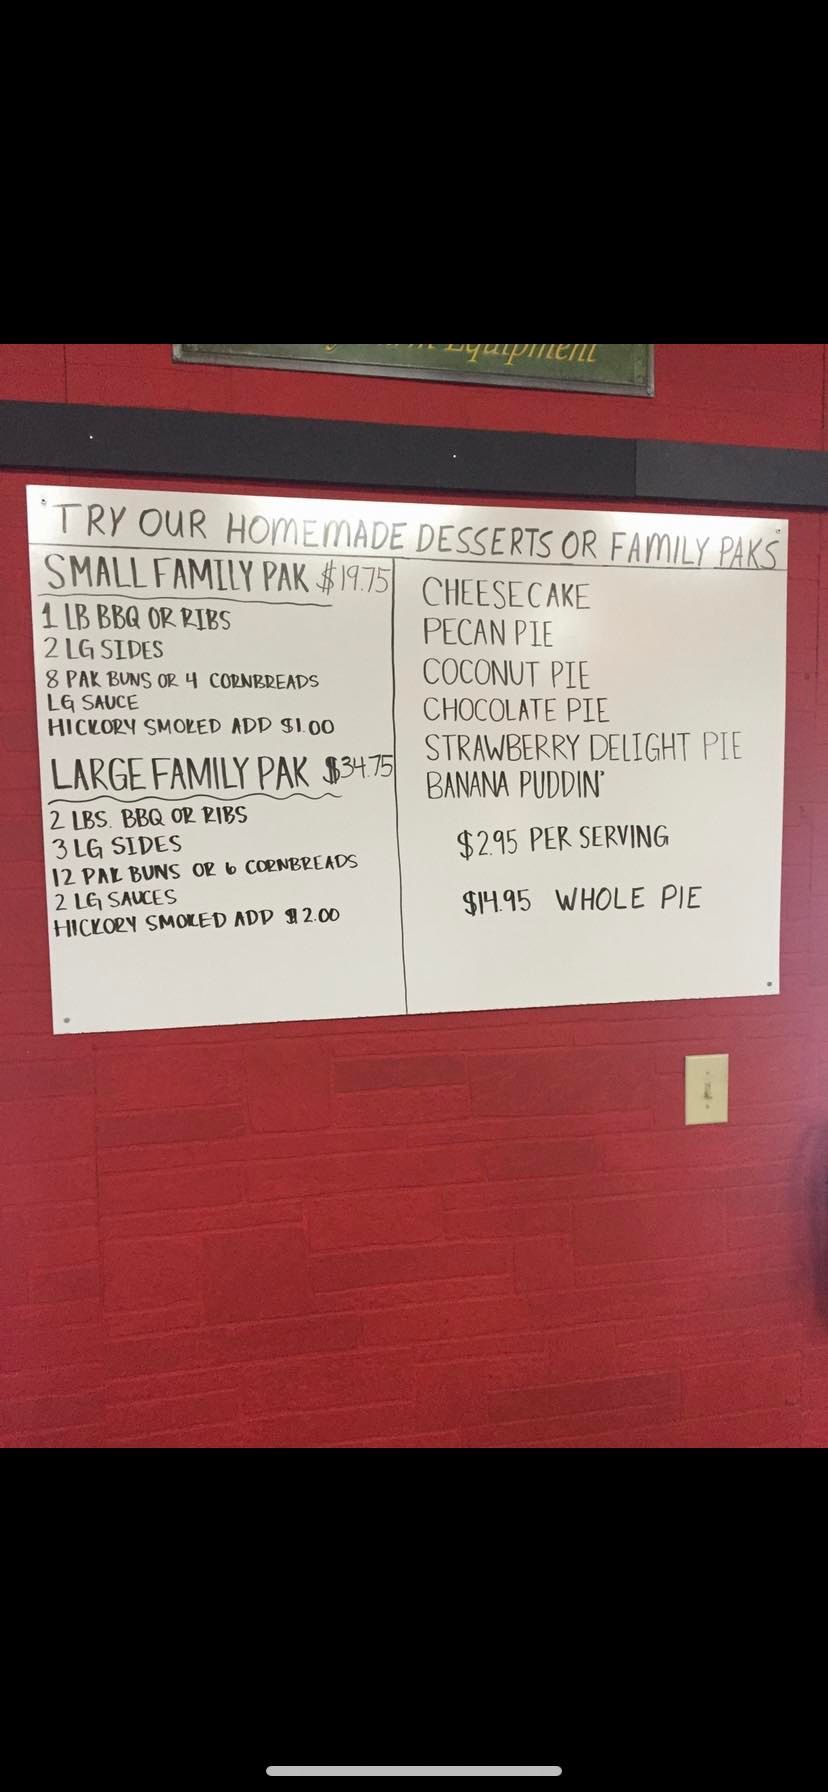 Equipment
TRY OUR HOMEMADE DESSERTS OR FAMILY PAKS
SMALL FAMILY PAK $19.75
1 LB BBQ OR RIBS
2 LG SIDES
8 PAK BUNS OR 4 CORNBREADS
LG SAUCE
HICKORY SMOKED ADD $1.00
LARGE FAMILY PAK $34.75
2 LBS. BBQ OR RIBS
3 LG SIDES
12 PAK BUNS OR 6 CORNBREADS
2 LG SAUCES
HICKORY SMOKED ADD $2.00
CHEESECAKE
PECAN PIE
COCONUT PIE
CHOCOLATE PIE
STRAWBERRY DELIGHT PIE
BANANA PUDDIN'
$2.95 PER SERVING
$14.95 WHOLE PIE